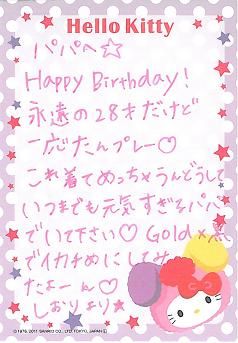 Hello Kitty
パパへ☆
Happy Birthday!
永遠の28才だけど
一応たんプレー♡
これ着てめっちゃうんどうして
いつまでも元気すぎるパパ
でいて下さい♡ Gold×黒
でイカチめにしてみ
たよーん♡
しおりより★
© 1976, 2011 SANRIO CO., LTD. TOKYO, JAPAN Ⓛ